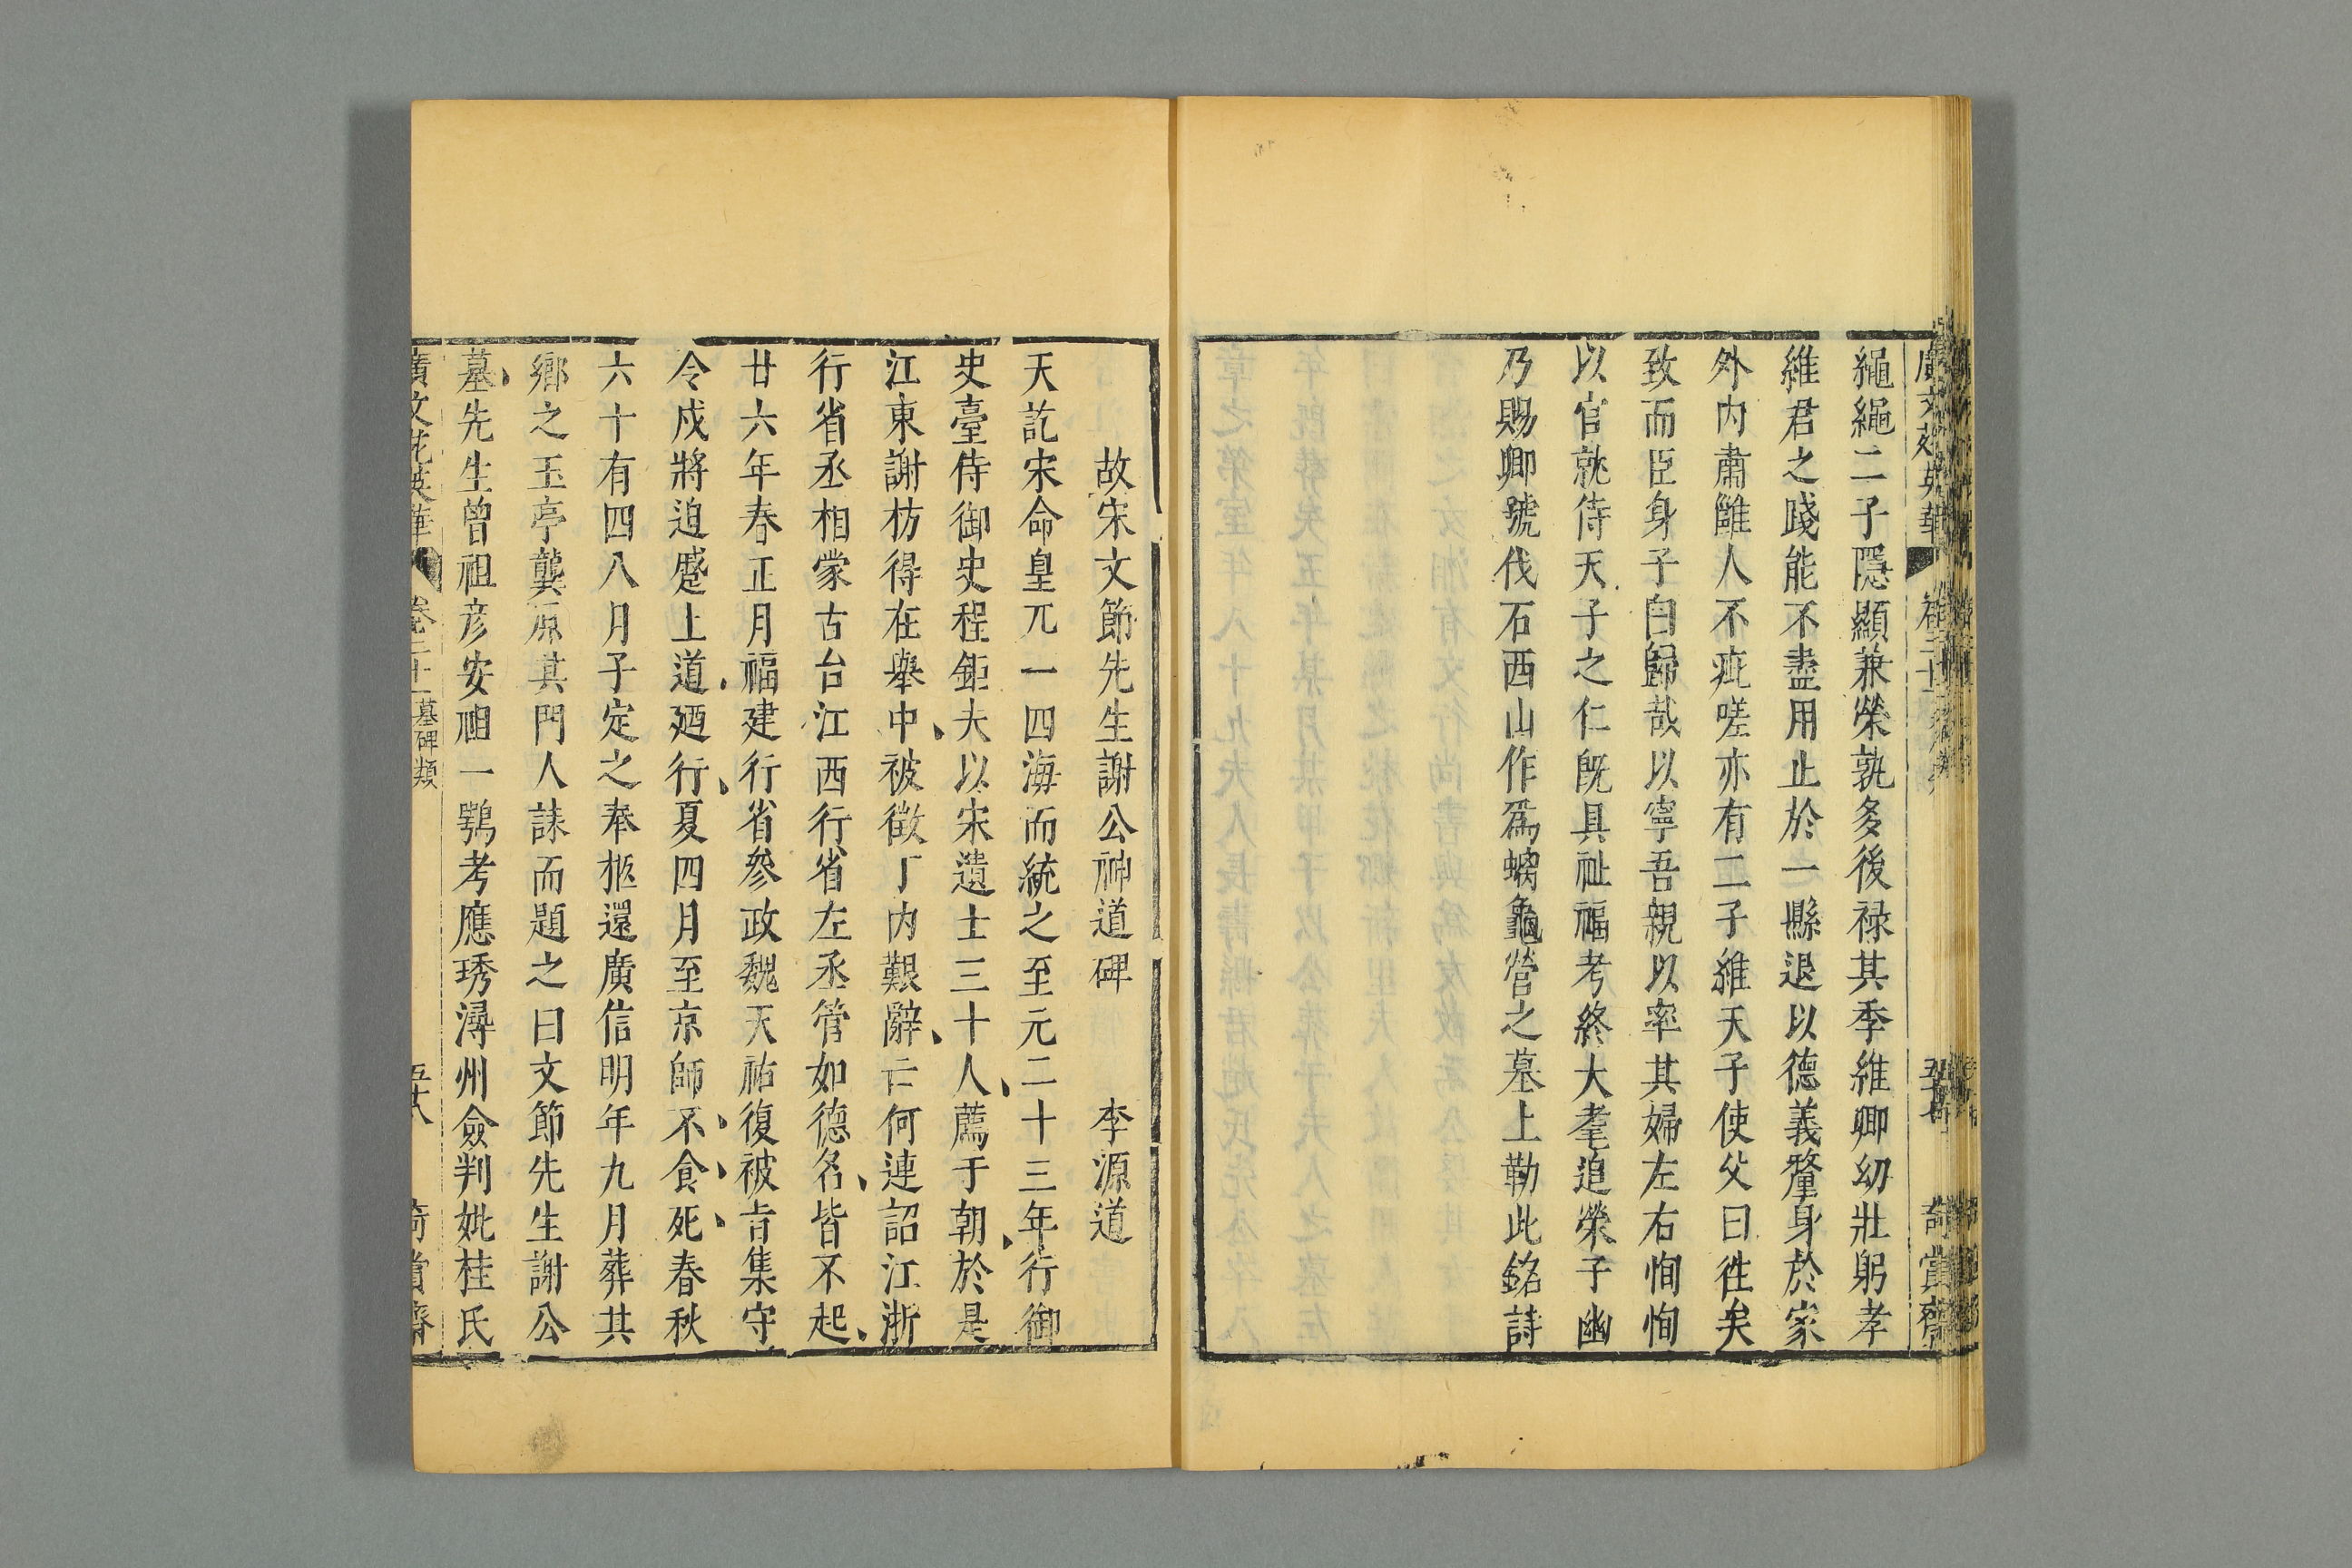 繩繩二子隱顯兼榮孰多後禄其季維卿幼壯躬孝
維君之踐能不盡用止於一縣退以德義釐身於家
外内肅雝人不疵嗟亦有二子維天子使父曰徃矣
致而臣身子自歸哉以寧吾親以率其婦左右恂恂
以官就侍天子之仁既具祉福考終大耄追榮子幽
乃賜卿號伐石西山作爲螭龜營之墓上勒此銘詩
故宋文節先生謝公神道碑 李源道
天訖宋命皇兀一四海而統之至元二十三年行御
史臺侍御史程鉅夫以宋遺士三十人薦于朝於是
江東謝枋得在舉中被徵丁内艱辭亡何連詔江浙
行省丞相蒙古台江西行省左丞管如德名皆不起
廿六年春正月福建行省參政魏天祐復被旨集守
令戍將迫蹙上道廼行夏四月至京師不食死春秋
六十有四八月子定之奉柩還廣信明年九月葬其
鄉之玉亭龔原其門人誄而題之曰文節先生謝公
墓先生曾祖彦安祖一鶚考應琇潯州僉判妣桂氏
廣文苑英華 卷二十一 墓碑類 五十八 奇賞齋